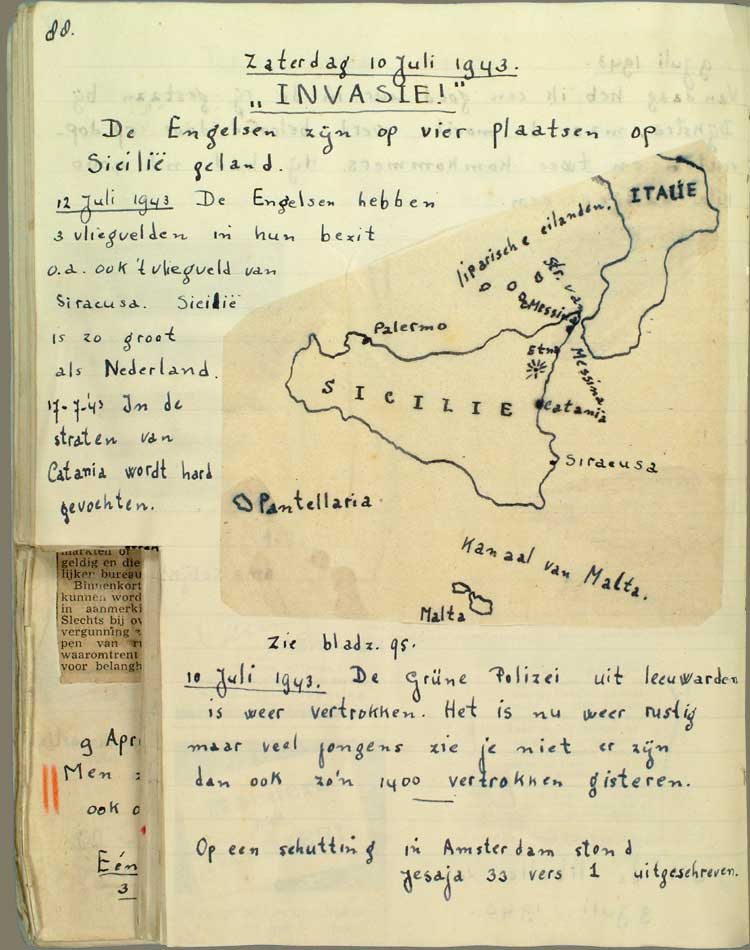 88.
Zaterdag 10 Juli 1943.
„INVASIE!"
De Engelsen zijn op vier plaatsen op
Sicilië geland.
12 Juli 1943 De Engelsen hebben
3 vliegvelden in hun bezit
o.a. ook 't vliegveld van
Siracusa. Sicilië
is zo groot
als Nederland.
17-7-'43 In de
straten van
Catania wordt hard
gevochten.
ITALIE
liparische eilanden.
Str. van
Messina
Palermo
Etna
Messina
SICILIE
Catania
Siracusa
Pantellaria
Kanaal van Malta.
Malta
Zie bladz. 95.
10 Juli 1943. De Grüne Polizei uit leeuwarden
is weer vertrokken. Het is nu weer rustig
maar veel jongens zie je niet er zijn
dan ook zo'n 1400 vertrokken gisteren.
Op een schutting in Amsterdam stond
Jesaja 33 vers 1 uitgeschreven.
markten of
geldig en die
lijker bureau
Binnenkort
kunnen word
in aanmerki
Slechts bij ov
vergunning
pen van
waaromtrent
voor belangh
9 Apri
Men
ook
Eén
3